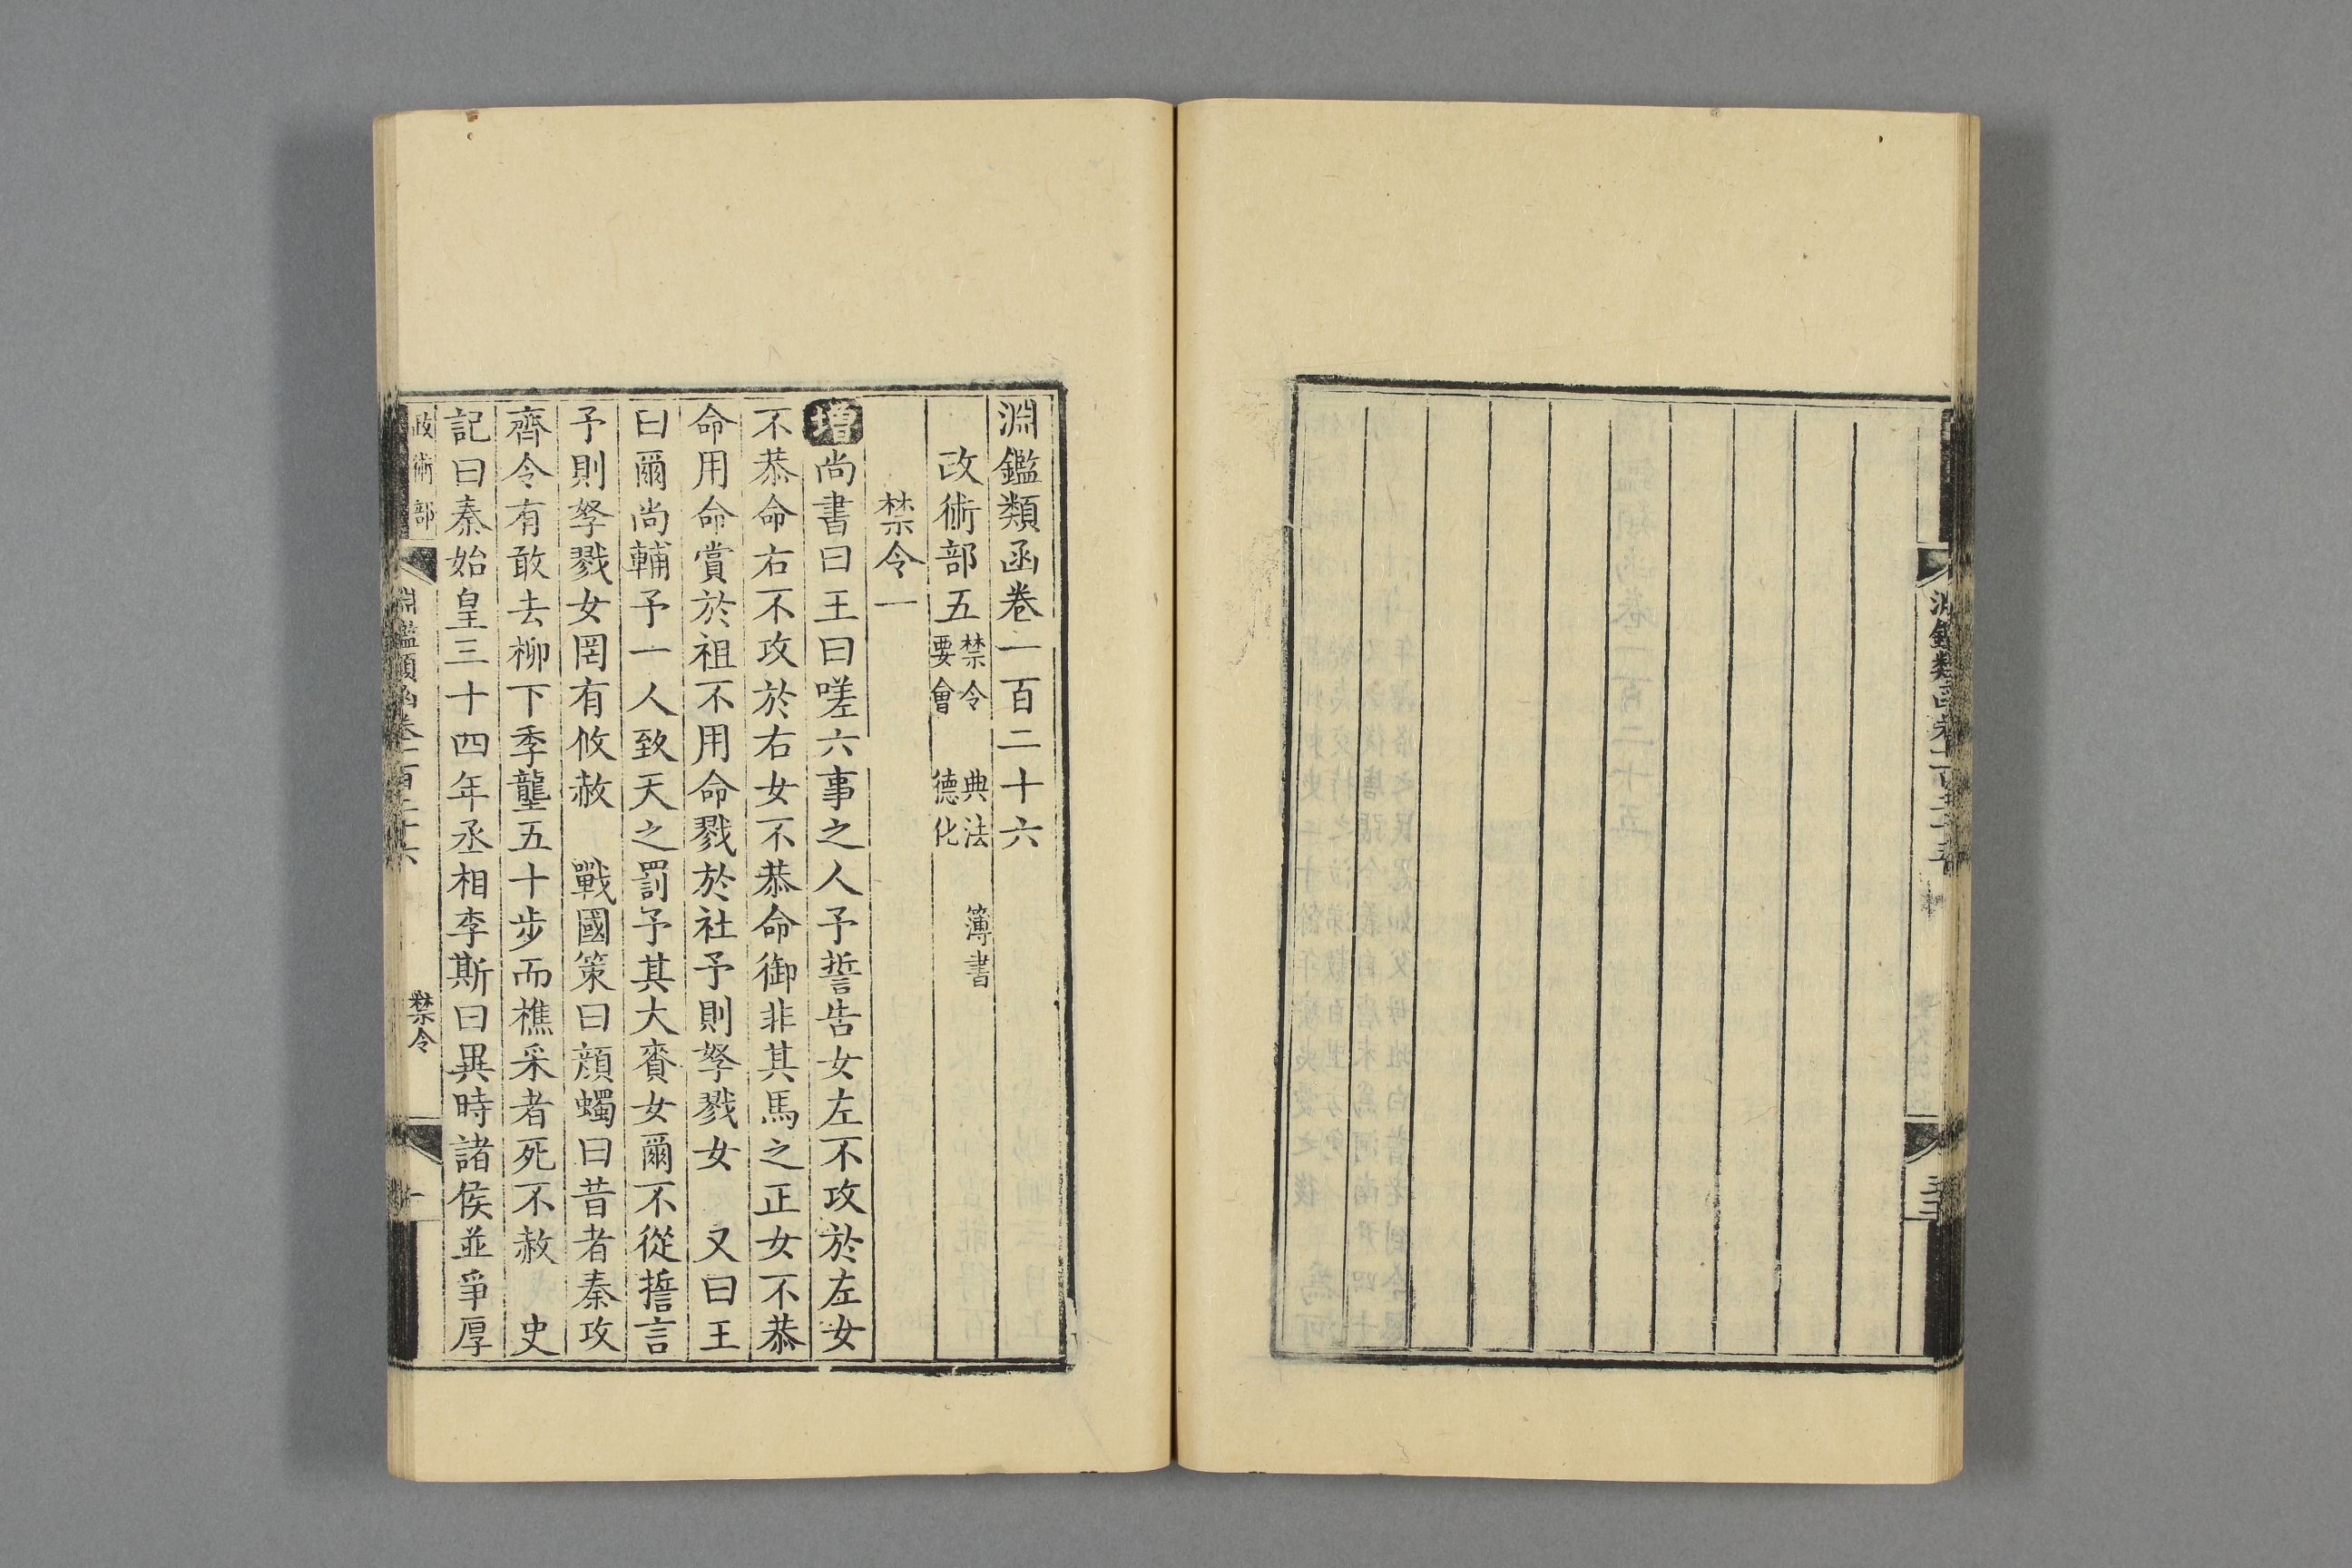 淵鑑類函卷一百二十六
政術部五 禁令 典法 簿書 要會 德化
禁令一
增尚書曰王曰嗟六事之人予誓告女左不攻於左女
不恭命右不攻於右女不恭命御非其馬之正女不恭
命用命賞於祖不用命戮於社予則孥戮女 又曰王
曰爾尚輔予一人致天之罰予其大賚女爾不從誓言
予則孥戮女罔有攸赦 戰國策曰顔蠋曰昔者秦攻
齊令有敢去柳下季壟五十步而樵采者死不赦 史
記曰秦始皇三十四年丞相李斯曰異時諸侯並爭厚
政術部 淵鑑類函卷一百二十六 禁令 一
淵鑑類函卷一百二十五